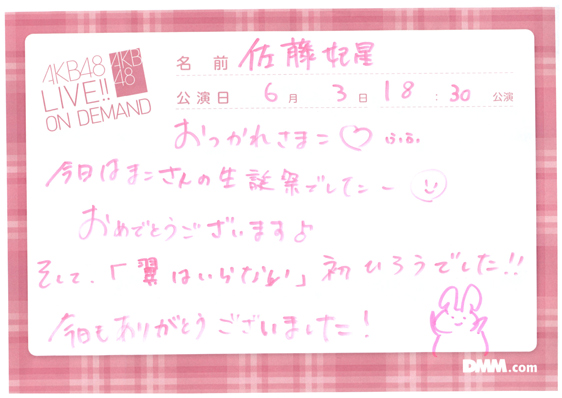 AKB48
LIVE!!
ON DEMAND
AKB
48
名前 佐藤妃星
公演日 6月 3日 18:30 公演
おつかれさまこ♡ふぅ。
今日はまこさんの生誕祭でしてこー
おめでとうございます♪
そして、「翼はいらない」初ひろうでした!!
今日もありがとうございましたこ!
DMM.com